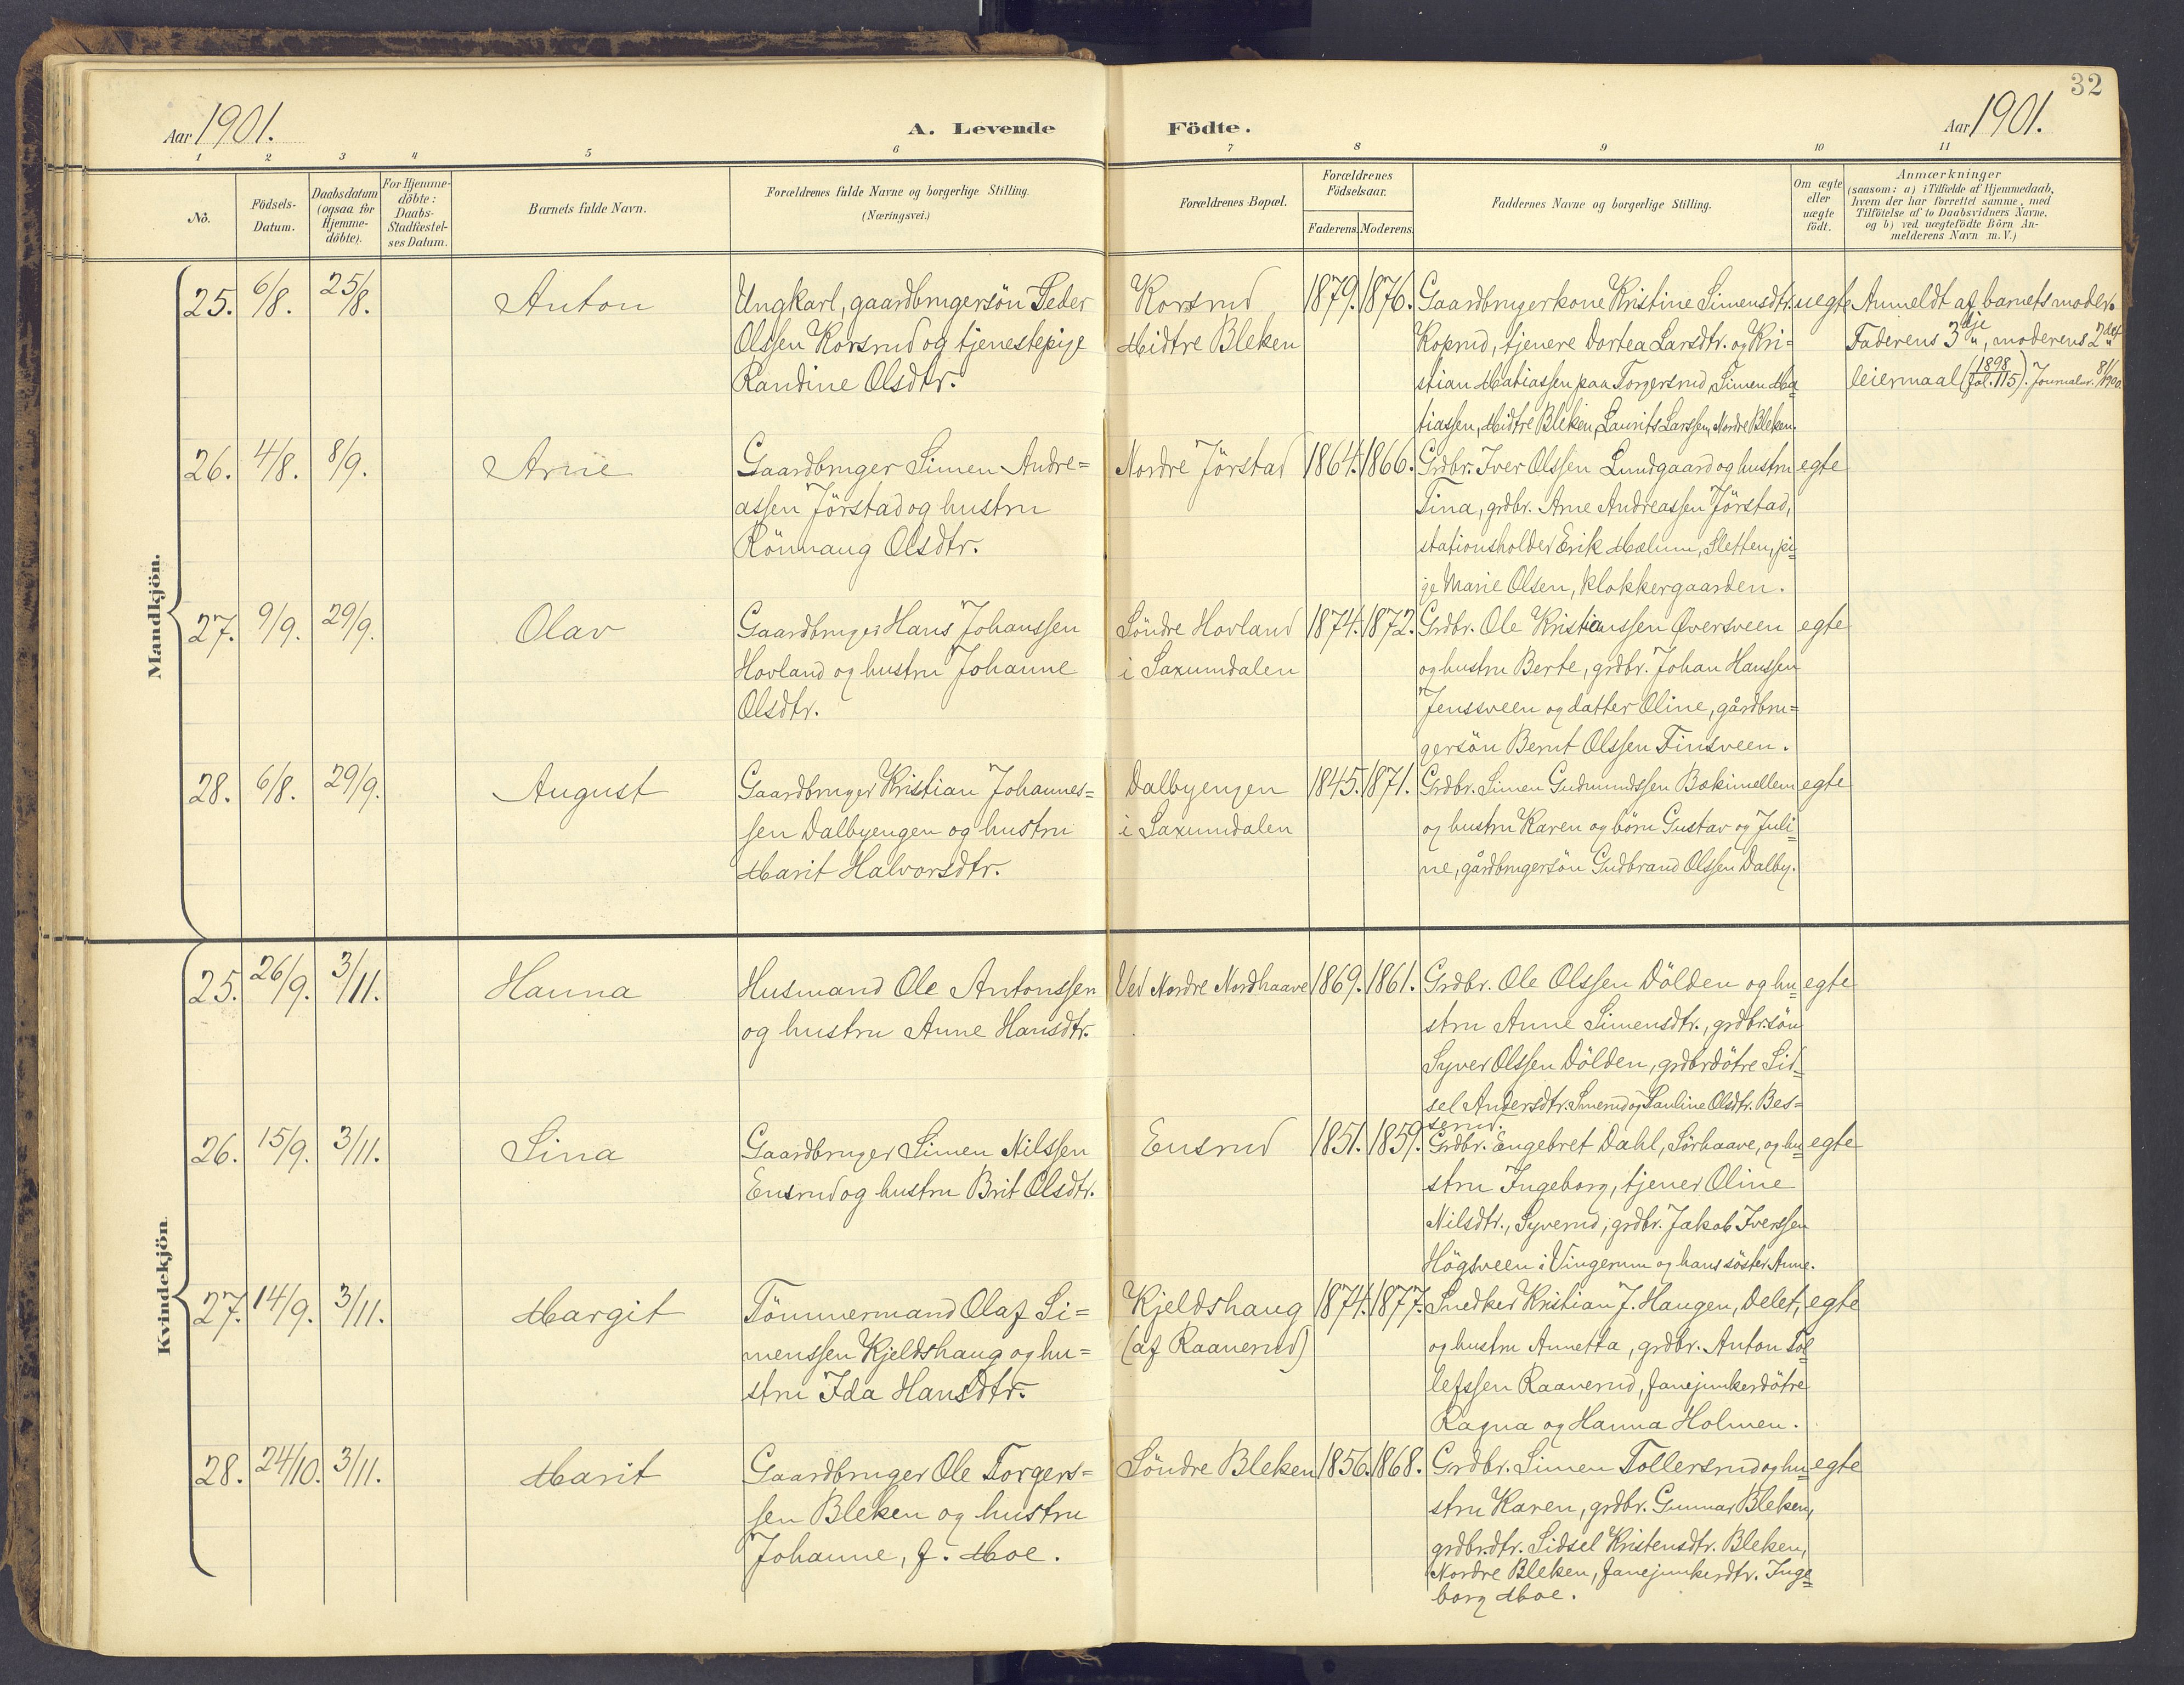 32
Aar 1901.
A. Levende Födte.
Aar 1901.
1 2 3 4 5 6 7 8 9 10 11
No.
Födsels-
Datum.
Daabsdatum
(ogsaa for
Hjemme-
döbte).
For Hjemme-
döbte:
Daabs-
Stadfæstel-
ses Datum.
Barnets fulde Navn.
Forældrenes fulde Navne og borgerlige Stilling.
(Næringsvei.)
Forældrenes Bopæl.
Forældrenes
Födselsaar.
Faderens. Moderens.
Faddernes Navne og borgerlige Stilling.
Om ægte
eller
uægte
födt.
Anmærkninger
(saasom: a) i Tilfælde af Hjemmedaab,
hvem der har forrettet samme, med
Tilföielse af to Daabsvidners Navne,
og b) ved uægtefödte Börn An-
melderens Navn m.V.)
Mandkjön.
25. 6/8. 25/8. Anton
Ungkarl, gaardbrugersön Peder
Olssen Korsrud og tjenestepige
Randine Olsdtr.
Korsrud
Midtre Bleken
1879. 1876.
Gaardbrugerkone Kristine Simensdtr.
Koprud, tjenere Dortea Larsdtr. og Kri=
stian Matiassen paa Torgersrud, Simen Ma
tiassen, Midtre Bleken, Laurits Larssen, Nordre Bleken.
uegte
Anmeldt af barnets moder.
Faderens 3dje, moderens 2det
leiermaal (1898 fol. 115). Journalnr. 81/1900.
26. 4/8. 8/9. Arne
Gaardbruger Simen Andre=
assen Jörstad og hustru
Rönnaug Olsdtr.
Nordre Jörstad
1864. 1866.
Grdbr. Iver Olssen Lundgaard og hustru
Tina, grdbr. Arne Andreassen Jörstad,
stationsholder Erik Mælum, Sletten, pi=
ge Marie Olsen, Klokkergaarden.
egte
27. 9/9. 29/9. Olav
Gaardbruger Hans Johanssen
Hovland og hustru Johanne
Olsdtr.
Söndre Hovland
i Saxumdalen
1874. 1872.
Grdbr. Ole Kristianssen Øversveen
og hustru Berte, grdbr. Johan Hanssen
Jenssveen og datter Oline, gårdbru=
gersön Bernt Olssen Finsveen.
egte
28. 6/8. 29/9. August
Gaardbruger Kristian Johannes=
sen Dalbyengen og hustru
Marit Halvorsdtr.
Dalbyengen
i Saxumdalen
1845. 1871.
Grdbr. Simen Gudmundssen Bækimellem
og hustru Karen og börn Gustav og Juli=
ne, gårdbrugersön Gudbrand Olssen Dalby.
egte
Kvindekjön.
25. 26/9. 3/11. Hanna
Husmand Ole Antonssen
og hustru Anne Hansdtr.
Ved Nordre Nordhaave
1869. 1861.
Grdbr. Ole Olssen Dölden og hu=
stru Anne Simensdtr., grdbr.sön
Syver Olssen Dölden, grdbrdötre Sid=
sel Andersdtr. Smerud og Pauline Olsdtr. Bes=
serud.
egte
26. 15/9. 3/11. Sina
Gaardbruger Simen Nilssen
Ensrud og hustru Brit Olsdtr.
Ensrud
1851. 1859.
Grdbr. Engebret Dahl, Sörhaave, og hu=
stru Ingeborg, tjener Oline
Nilsdtr., Syverud, grdbr. Jakob Iverssen
Högsveen i Vingerum og hans söster Anne.
egte
27. 14/9. 3/11. Margit
Tömmermand Olaf Si=
menssen Kjeldshaug og hu=
stru Ida Hansdtr.
Kjeldshaug
(af Raanerud)
1874. 1877.
Snedker Kristian J. Haugen, Delet,
og hustru Annetta, grdbr. Anton Tol=
lefssen Raanerud, fanejunkerdötre
Ragna og Hanna Holmen.
egte
28. 24/10. 3/11. Marit
Gaardbruger Ole Torgers=
sen Bleken og hustru
Johanne, f. Moe.
Söndre Bleken
1856. 1868.
Grdbr. Simen Tollersrud og hu=
stru Karen, grdbr. Gunnar Bleken,
grdbr.dtr. Sidsel Kristensdtr. Bleken,
Nordre Bleken, fanejunkerdtr. Inge=
borg Moe.
egte